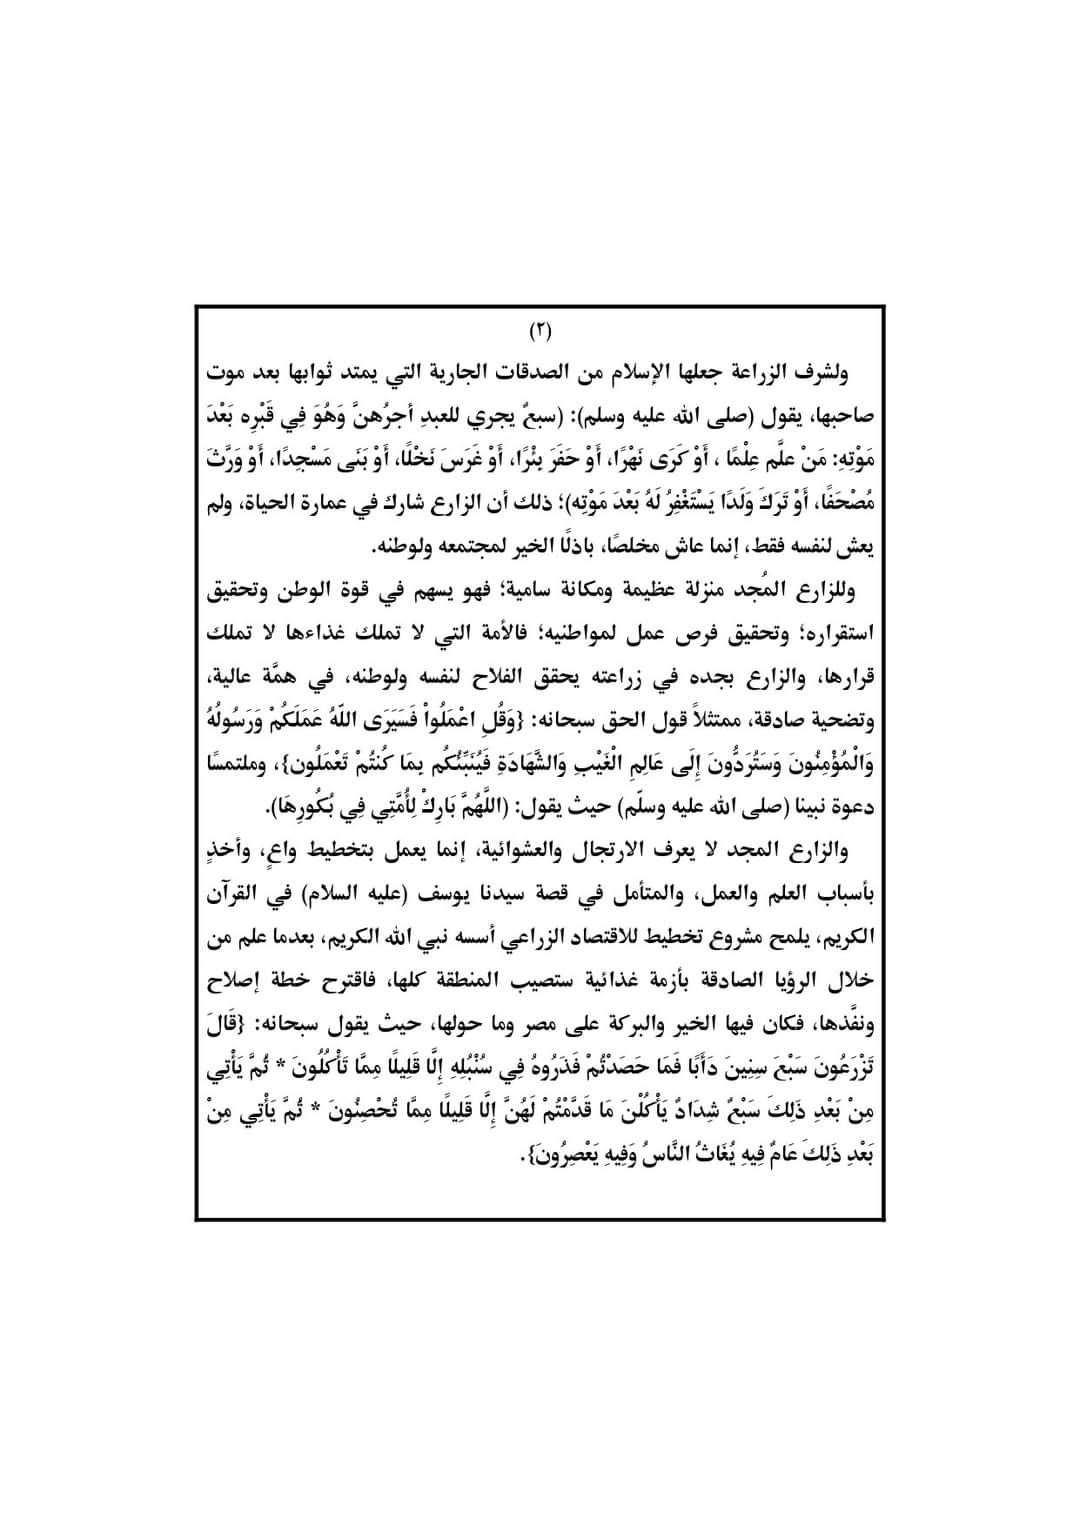 (٢)
ولشرف الزراعة جعلها الإسلام من الصدقات الجارية التي يمتد ثوابها بعد موت
صاحبها، يقول (صلى الله عليه وسلم): (سبعٌ يجري للعبدِ أجرُهنَّ وَهُوَ فِي قَبْرِه بَعْدَ
مَوْتِهِ: مَنْ علَّم عِلْمًا ، أَوْ كَرَى نَهْرًا، أَوْ حَفَرَ بِئْرًا، أَوْ غَرَسَ نَخْلًا، أَوْ بَنَى مَسْجِدًا، أَوْ وَرَّثَ
مُصْحَفًا، أَوْ تَرَكَ وَلَدًا يَسْتَغْفِرُ لَهُ بَعْدَ مَوْتِه)؛ ذلك أن الزارع شارك في عمارة الحياة، ولم
يعش لنفسه فقط، إنما عاش مخلصًا، باذلًا الخير لمجتمعه ولوطنه.
وللزارع المُجد منزلة عظيمة ومكانة سامية؛ فهو يسهم في قوة الوطن وتحقيق
استقراره؛ وتحقيق فرص عمل لمواطنيه؛ فالأمة التي لا تملك غذاءها لا تملك
قرارها، والزارع بجده في زراعته يحقق الفلاح لنفسه ولوطنه، في همَّة عالية،
وتضحية صادقة، ممتثلاً قول الحق سبحانه: {وَقُلِ اعْمَلُواْ فَسَيَرَى اللّهُ عَمَلَكُمْ وَرَسُولُهُ
وَالْمُؤْمِنُونَ وَسَتُرَدُّونَ إِلَى عَالِمِ الْغَيْبِ وَالشَّهَادَةِ فَيُنَبِّئُكُم بِمَا كُنتُمْ تَعْمَلُون}، وملتمسًا
دعوة نبينا (صلى الله عليه وسلّم) حيث يقول: (اللَّهُمَّ بَارِكْ لِأُمَّتِي فِي بُكُورِهَا).
والزارع المجد لا يعرف الارتجال والعشوائية، إنما يعمل بتخطيط واعٍ، وأخذٍ
بأسباب العلم والعمل، والمتأمل في قصة سيدنا يوسف (عليه السلام) في القرآن
الكريم، يلمح مشروع تخطيط للاقتصاد الزراعي أسسه نبي الله الكريم، بعدما علم من
خلال الرؤيا الصادقة بأزمة غذائية ستصيب المنطقة كلها، فاقترح خطة إصلاح
ونفَّذها، فكان فيها الخير والبركة على مصر وما حولها، حيث يقول سبحانه: {قَالَ
تَزْرَعُونَ سَبْعَ سِنِينَ دَأَبًا فَمَا حَصَدْتُمْ فَذَرُوهُ فِي سُنْبُلِهِ إِلَّا قَلِيلًا مِمَّا تَأْكُلُونَ * ثُمَّ يَأْتِي
مِنْ بَعْدِ ذَلِكَ سَبْعٌ شِدَادٌ يَأْكُلْنَ مَا قَدَّمْتُمْ لَهُنَّ إِلَّا قَلِيلًا مِمَّا تُحْصِنُونَ * ثُمَّ يَأْتِي مِنْ
بَعْدِ ذَلِكَ عَامٌ فِيهِ يُغَاثُ النَّاسُ وَفِيهِ يَعْصِرُونَ}.